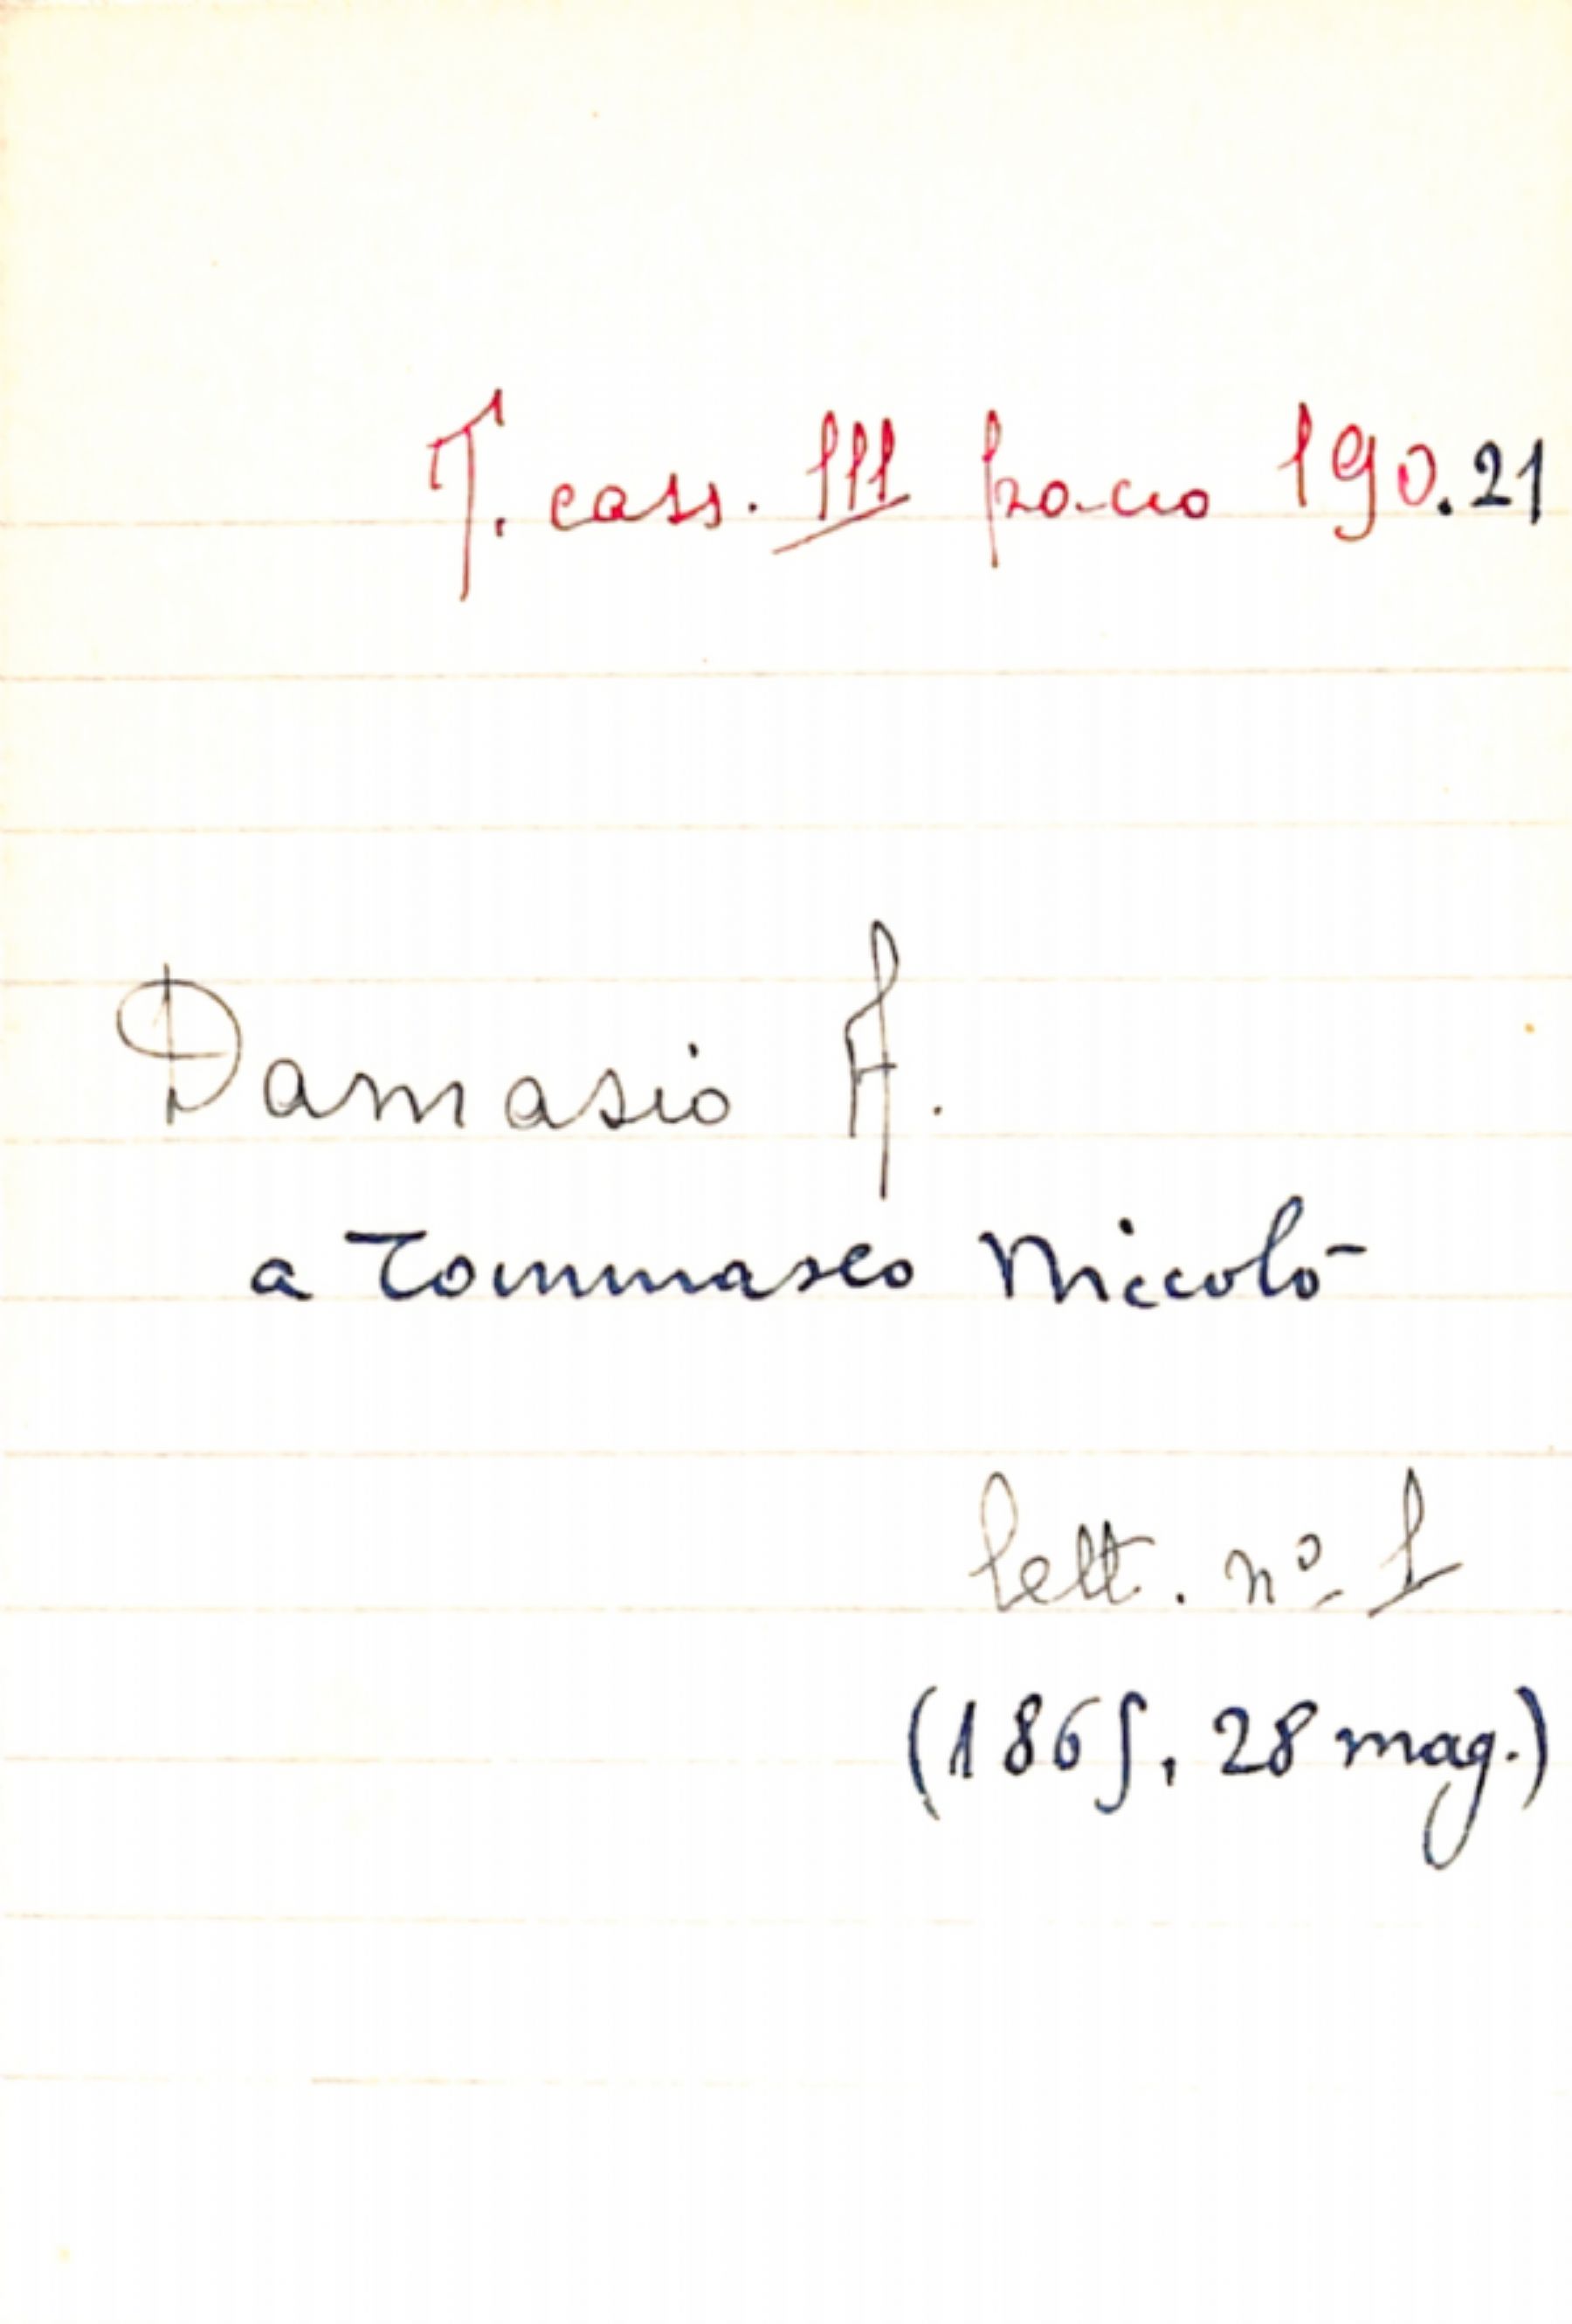 T. cass. III pacco 190.21
Damasio A.
a Tommaseo Niccolò
lett. nº 1
(1865, 28 mag.)